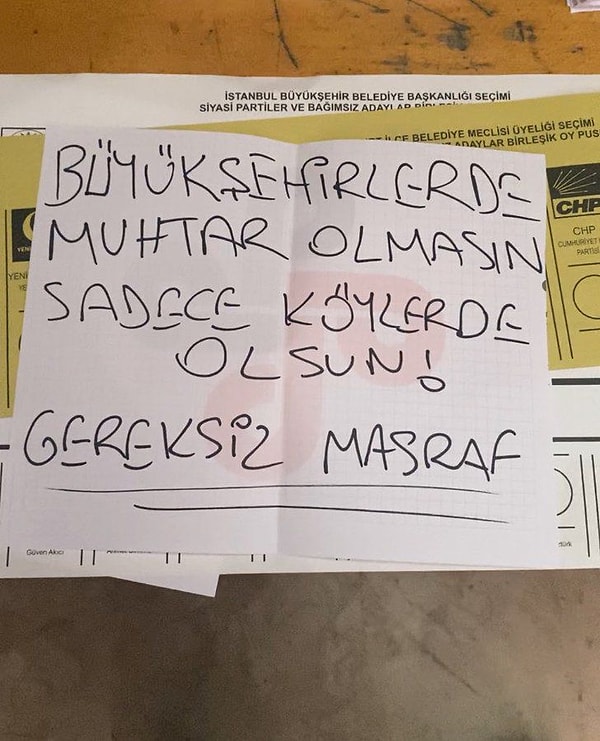 İSTANBUL BÜYÜKŞEHİR BELEDİYE BAŞKANLIĞI SEÇİMİ
SİYASİ PARTİLER VE BAĞIMSIZ ADAYLAR
İLÇE BELEDİYE MECLİSİ ÜYELİĞİ SEÇİMİ
ADAYLAR BİRLEŞİK OY PUS
BÜYÜKŞEHİRLERDE
MUHTAR OLMASIN
SADECE KÖYLERDE
OLSUN!
GEREKSİZ MASRAF
CHP
CHP
CUMHURİYET
PARTİSİ
YENİ
Güven Akıcı